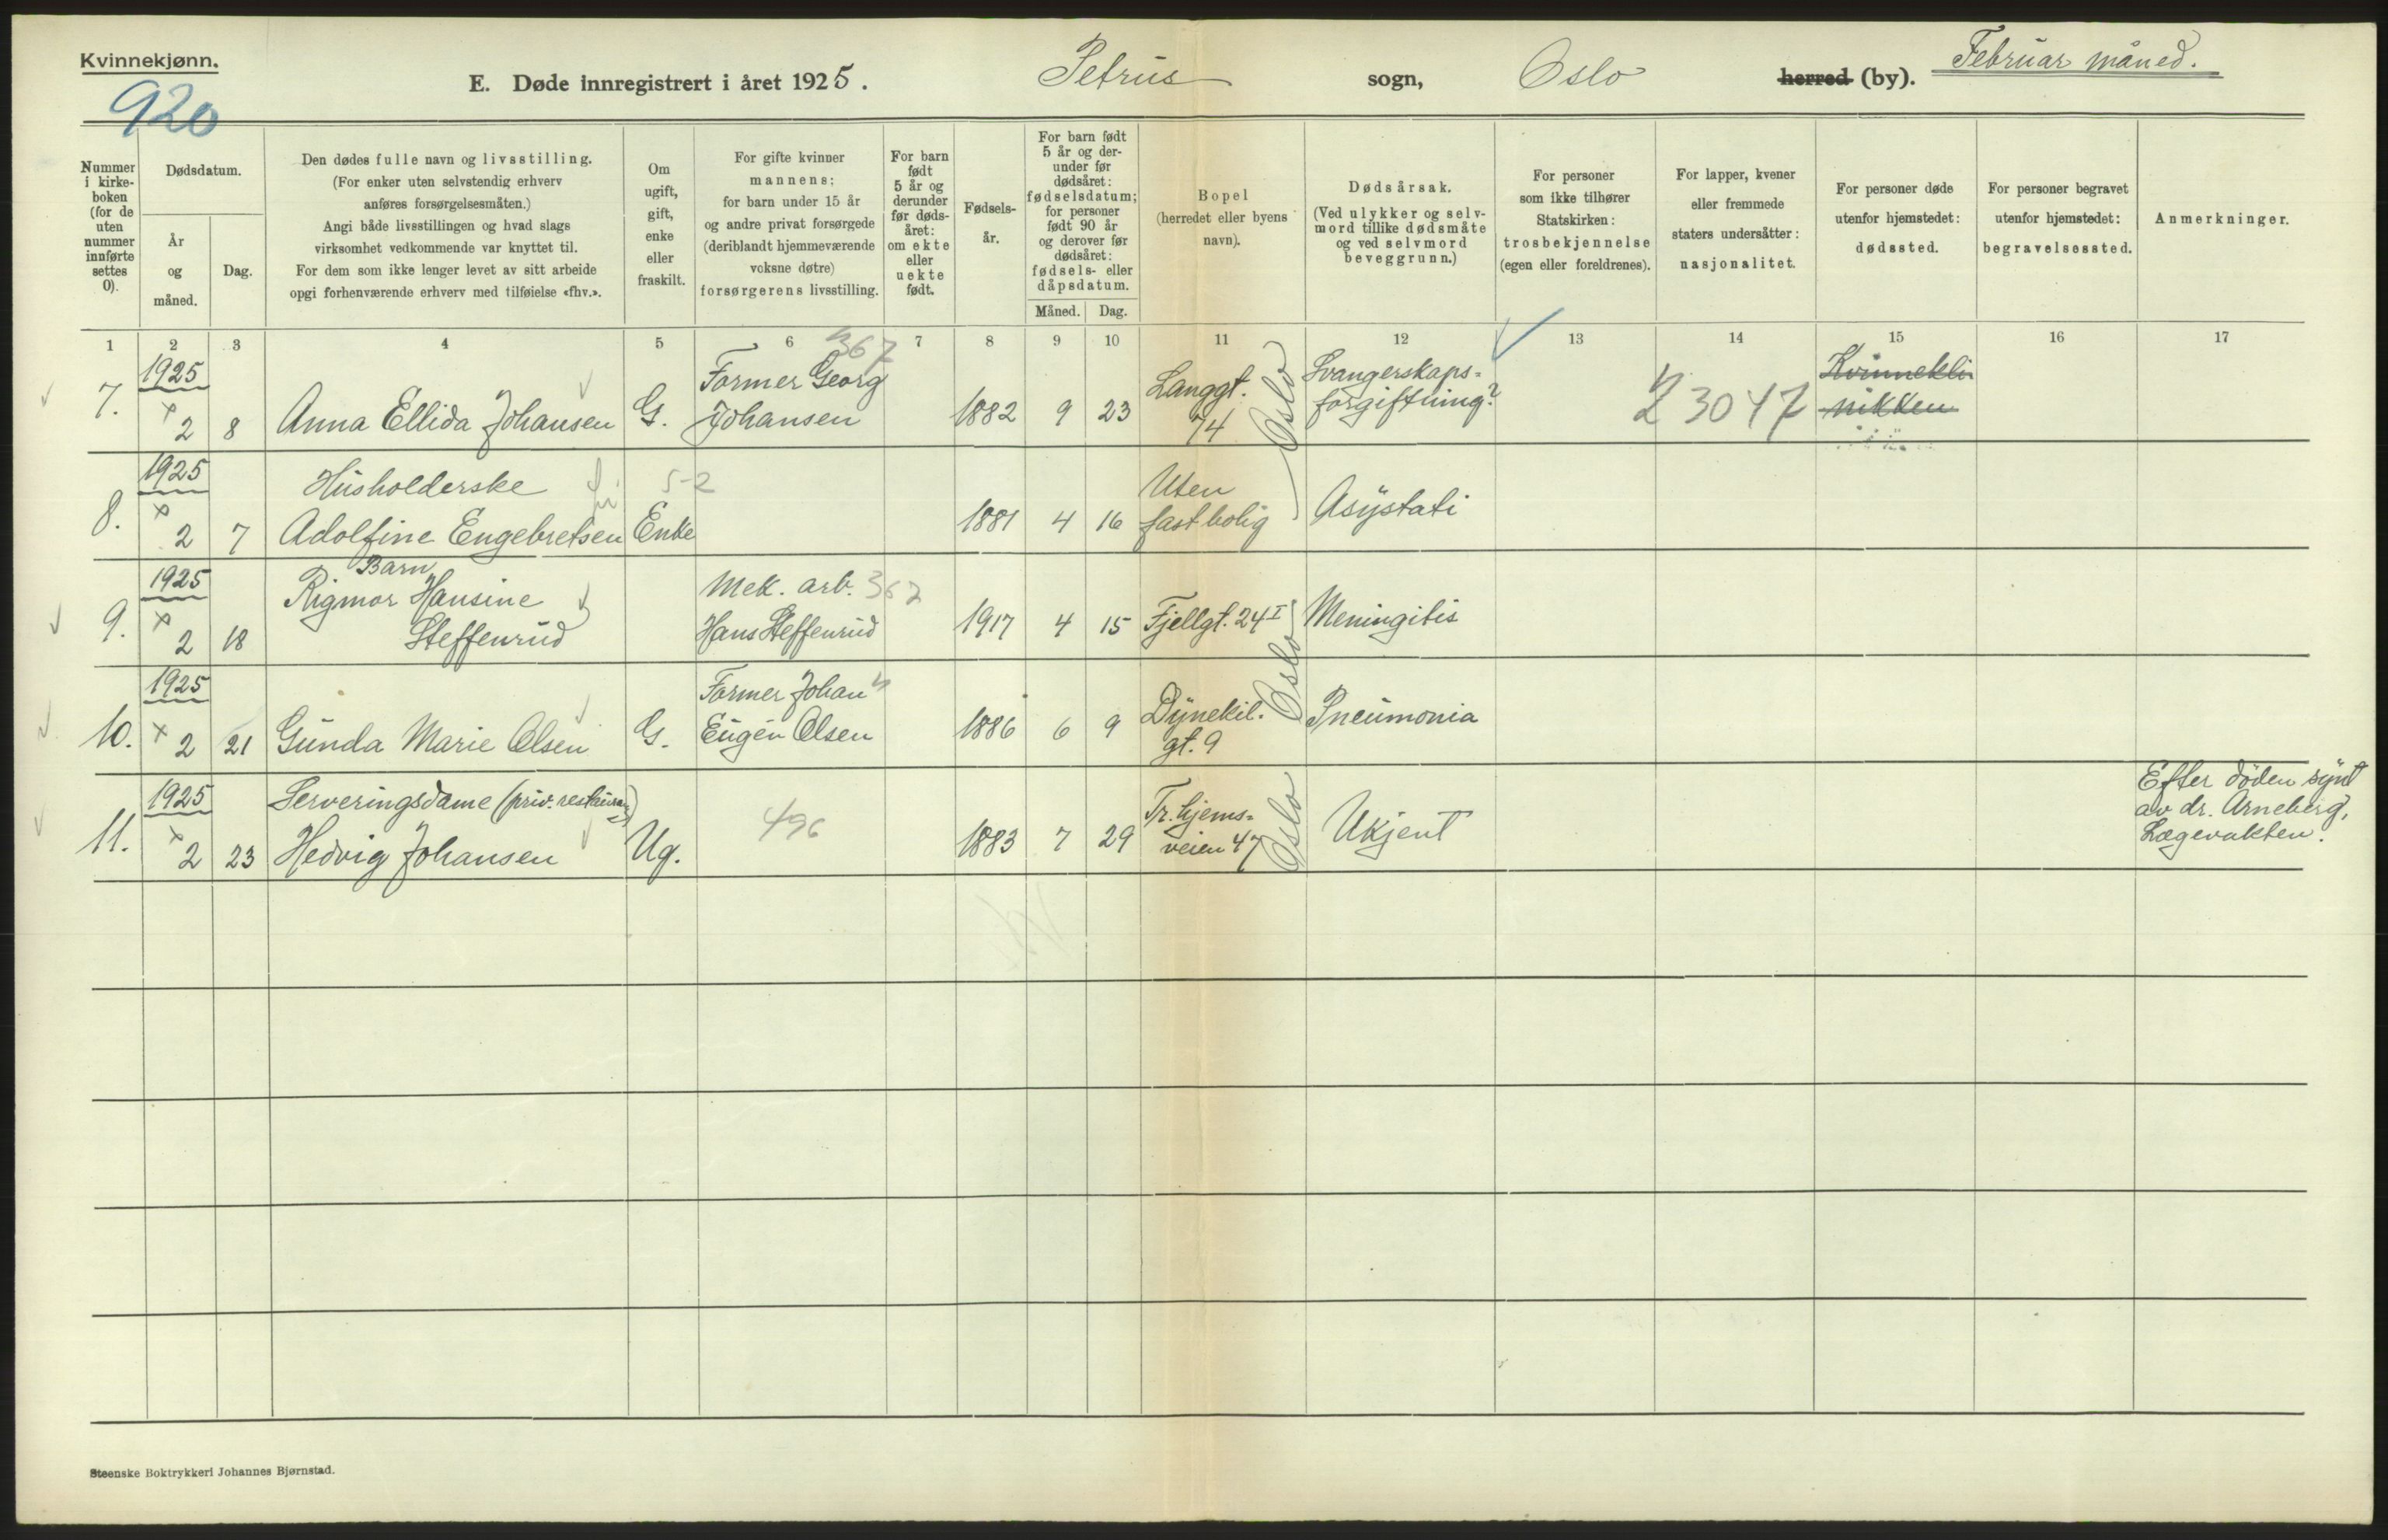 Kvinnekjønn.
920
E. Døde innregistrert i året 1925. Petrus sogn, Oslo herred (by). Februar måned.
Nummer
i kirke-
boken
(for de
uten
nummer
innførte
settes
0).
Dødsdatum.
År
og
måned.
Dag.
Den dødes fulle navn og livsstilling.
(For enker uten selvstendig erhverv
anføres forsørgelsesmåten.)
Angi både livsstillingen og hvad slags
virksomhet vedkommende var knyttet til.
For dem som ikke lenger levet av sitt arbeide
opgi forhenværende erhverv med tilføielse «fhv.».
Om
ugift,
gift,
enke
eller
fraskilt.
For gifte kvinner
mannens;
for barn under 15 år
og andre privat forsørgede
(deriblandt hjemmeværende
voksne døtre)
forsørgerens livsstilling.
For barn
født
5 år og
derunder
før døds-
året:
om ekte
eller
uekte
født.
Fødsels-
år.
For barn født
5 år og der-
under før
dødsåret:
fødselsdatum;
for personer
født 90 år
og derover før
dødsåret:
fødsels- eller
dåpsdatum.
Måned. Dag.
Bopel
(herredet eller byens
navn).
Dødsårsak.
(Ved ulykker og selv-
mord tillike dødsmåte
og ved selvmord
beveggrunn.)
For personer
som ikke tilhører
Statskirken:
trosbekjennelse
(egen eller foreldrenes).
For lapper, kvener
eller fremmede
staters undersåtter:
nasjonalitet.
For personer døde
utenfor hjemstedet:
dødssted.
For personer begravet
utenfor hjemstedet:
begravelsessted.
Anmerkninger.
1 2 3 4 5 6 7 8 9 10 11 12 13 14 15 16 17
367
1925 Former Georg Langgt. Svangerskaps- Kvinnekli
7. 2 8 Anna Ellida Johansen G. Johansen 1882 9 23 74 Oslo forgiftning? 23047 nikken
1925 Husholderske 5-2 Uten
8. 2 7 Adolfine Engebretsen Enke 1881 4 16 fast bolig Asystati
Barn
1925 Rigmor Hansine Mek. arb. 367
9. 2 18 Steffenrud Hans Steffenrud 1917 4 15 Fjellgt. 24 I Oslo Meningitis
1925 Former Johan
10. 2 21 Gunda Marie Olsen G. Eugén Olsen 1886 6 9 Dynekil. Pneumonia
gt. 9
1925 Serveringsdame (priv. restaurant) Tr.hjems- Efter døden synt
av dr. Arneberg,
11. 2 23 Hedvig Johansen Ug. 496 1883 7 29 veien 47 Oslo Ukjent Lægevakten.
Steenske Boktrykkeri Johannes Bjørnstad.